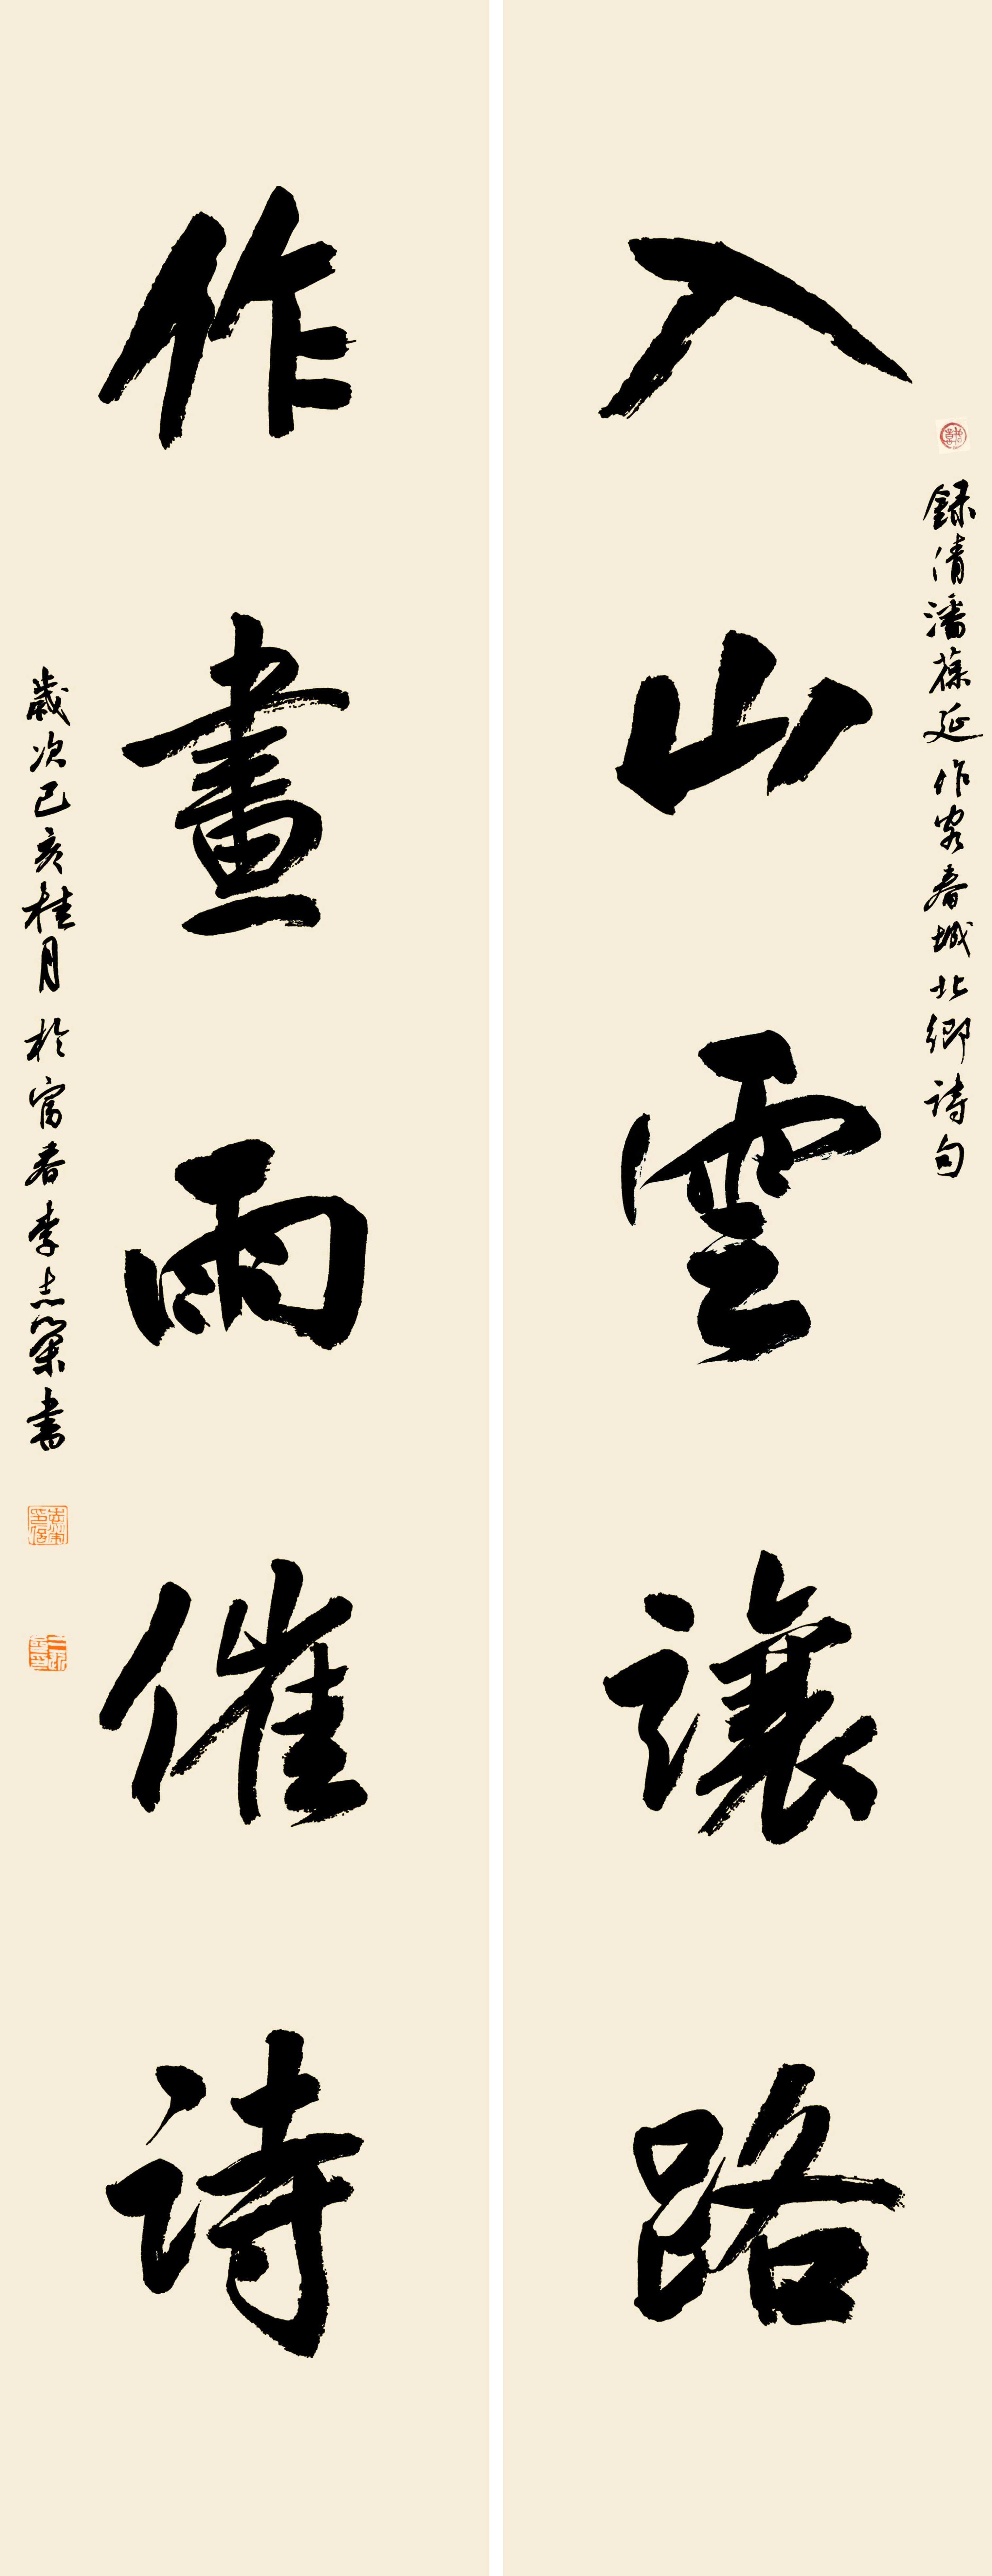 入山雲讓路
録清潘葆延作客春城北鄉詩句
作畫雨催詩
歲次己亥桂月於富春李志榘書